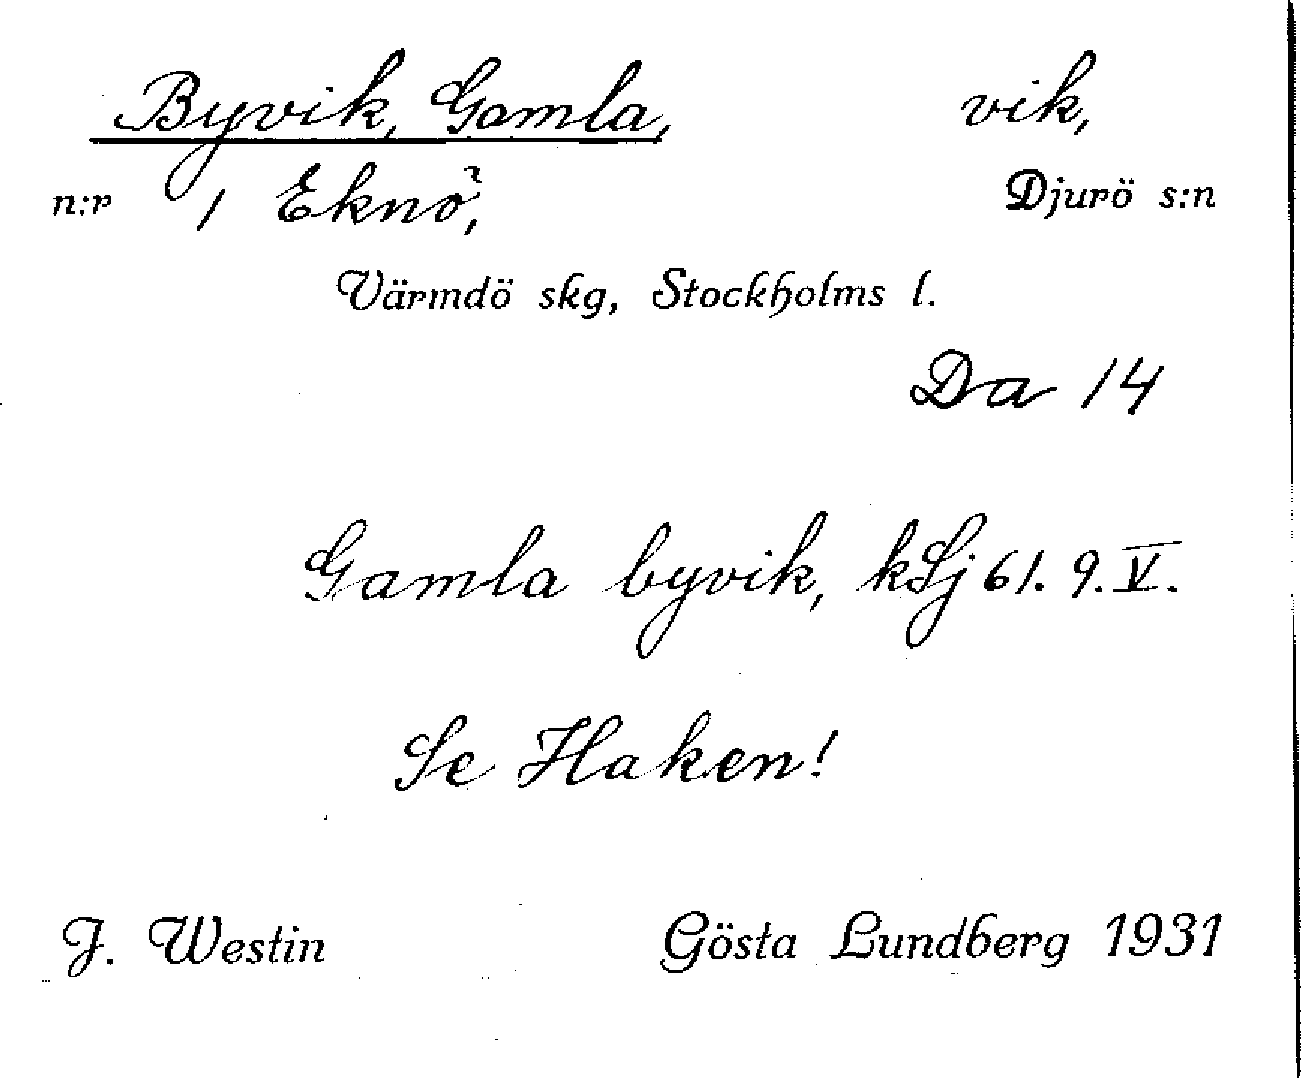 Byvik, Gamla, vik,
n:r 1 Eknö, Djurö s:n
Värmdö skg, Stockholms l.
Da 14
Gamla byvik, kSj 61. 9. V.
Se Haken!
J. Westin Gösta Lundberg 1931